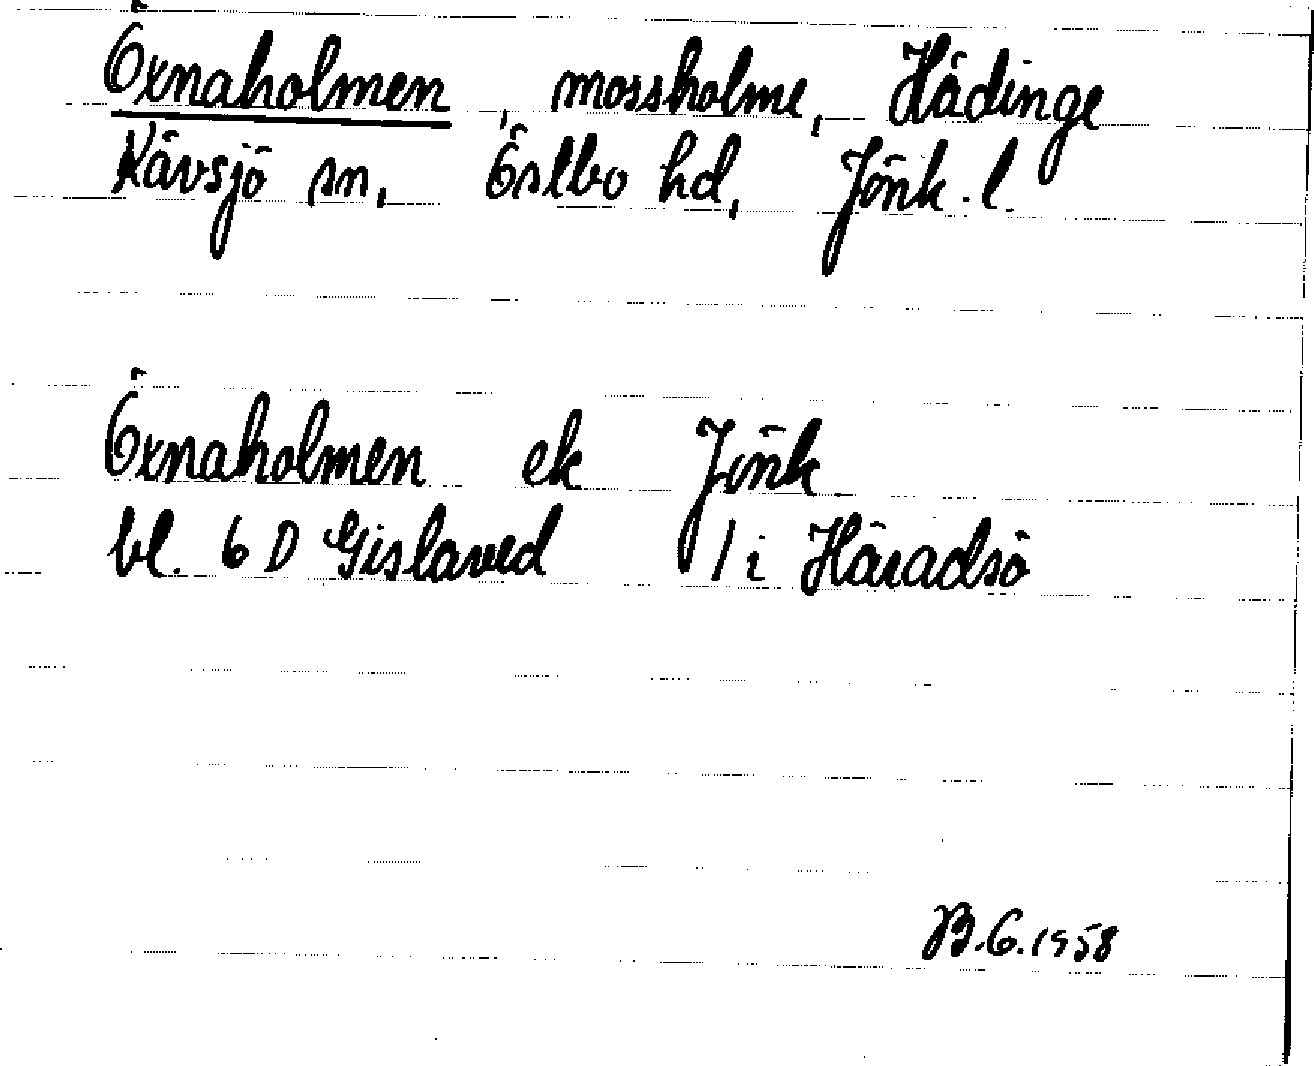 Örnaholmen, mossholme, Hådinge
Kävsjö sn, Östbo hd, Jönk. l.
Örnaholmen ek Jönk
bl. 6 D Gislaved / i Häradsö
B.G. 1958